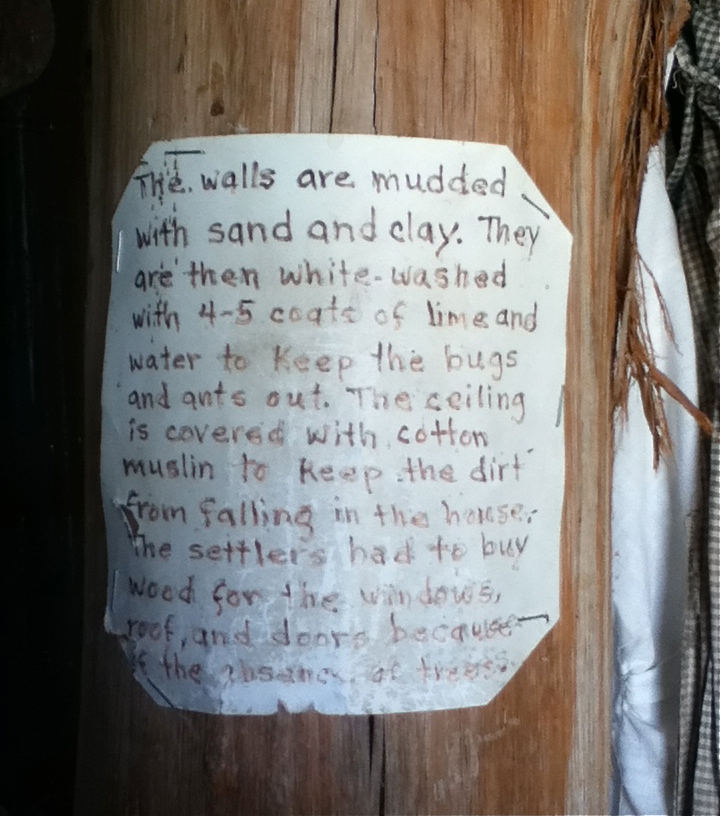 The walls are mudded
with sand and clay. They
are then white-washed
with 4-5 coats of lime and
water to keep the bugs
and ants out. The ceiling
is covered with cotton
muslin to keep the dirt
from falling in the house.
The settlers had to buy
wood for the windows,
roof, and doors because
of the absence of trees.